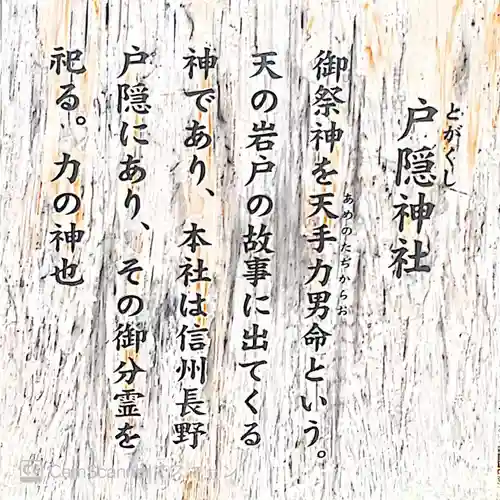 とがくし
戸隠神社
御祭神を天手力男命という。
あめのたぢからお
天の岩戸の故事に出てくる
神であり、本社は信州長野
戸隠にあり、その御分霊を
祀る。力の神也
CamScanner